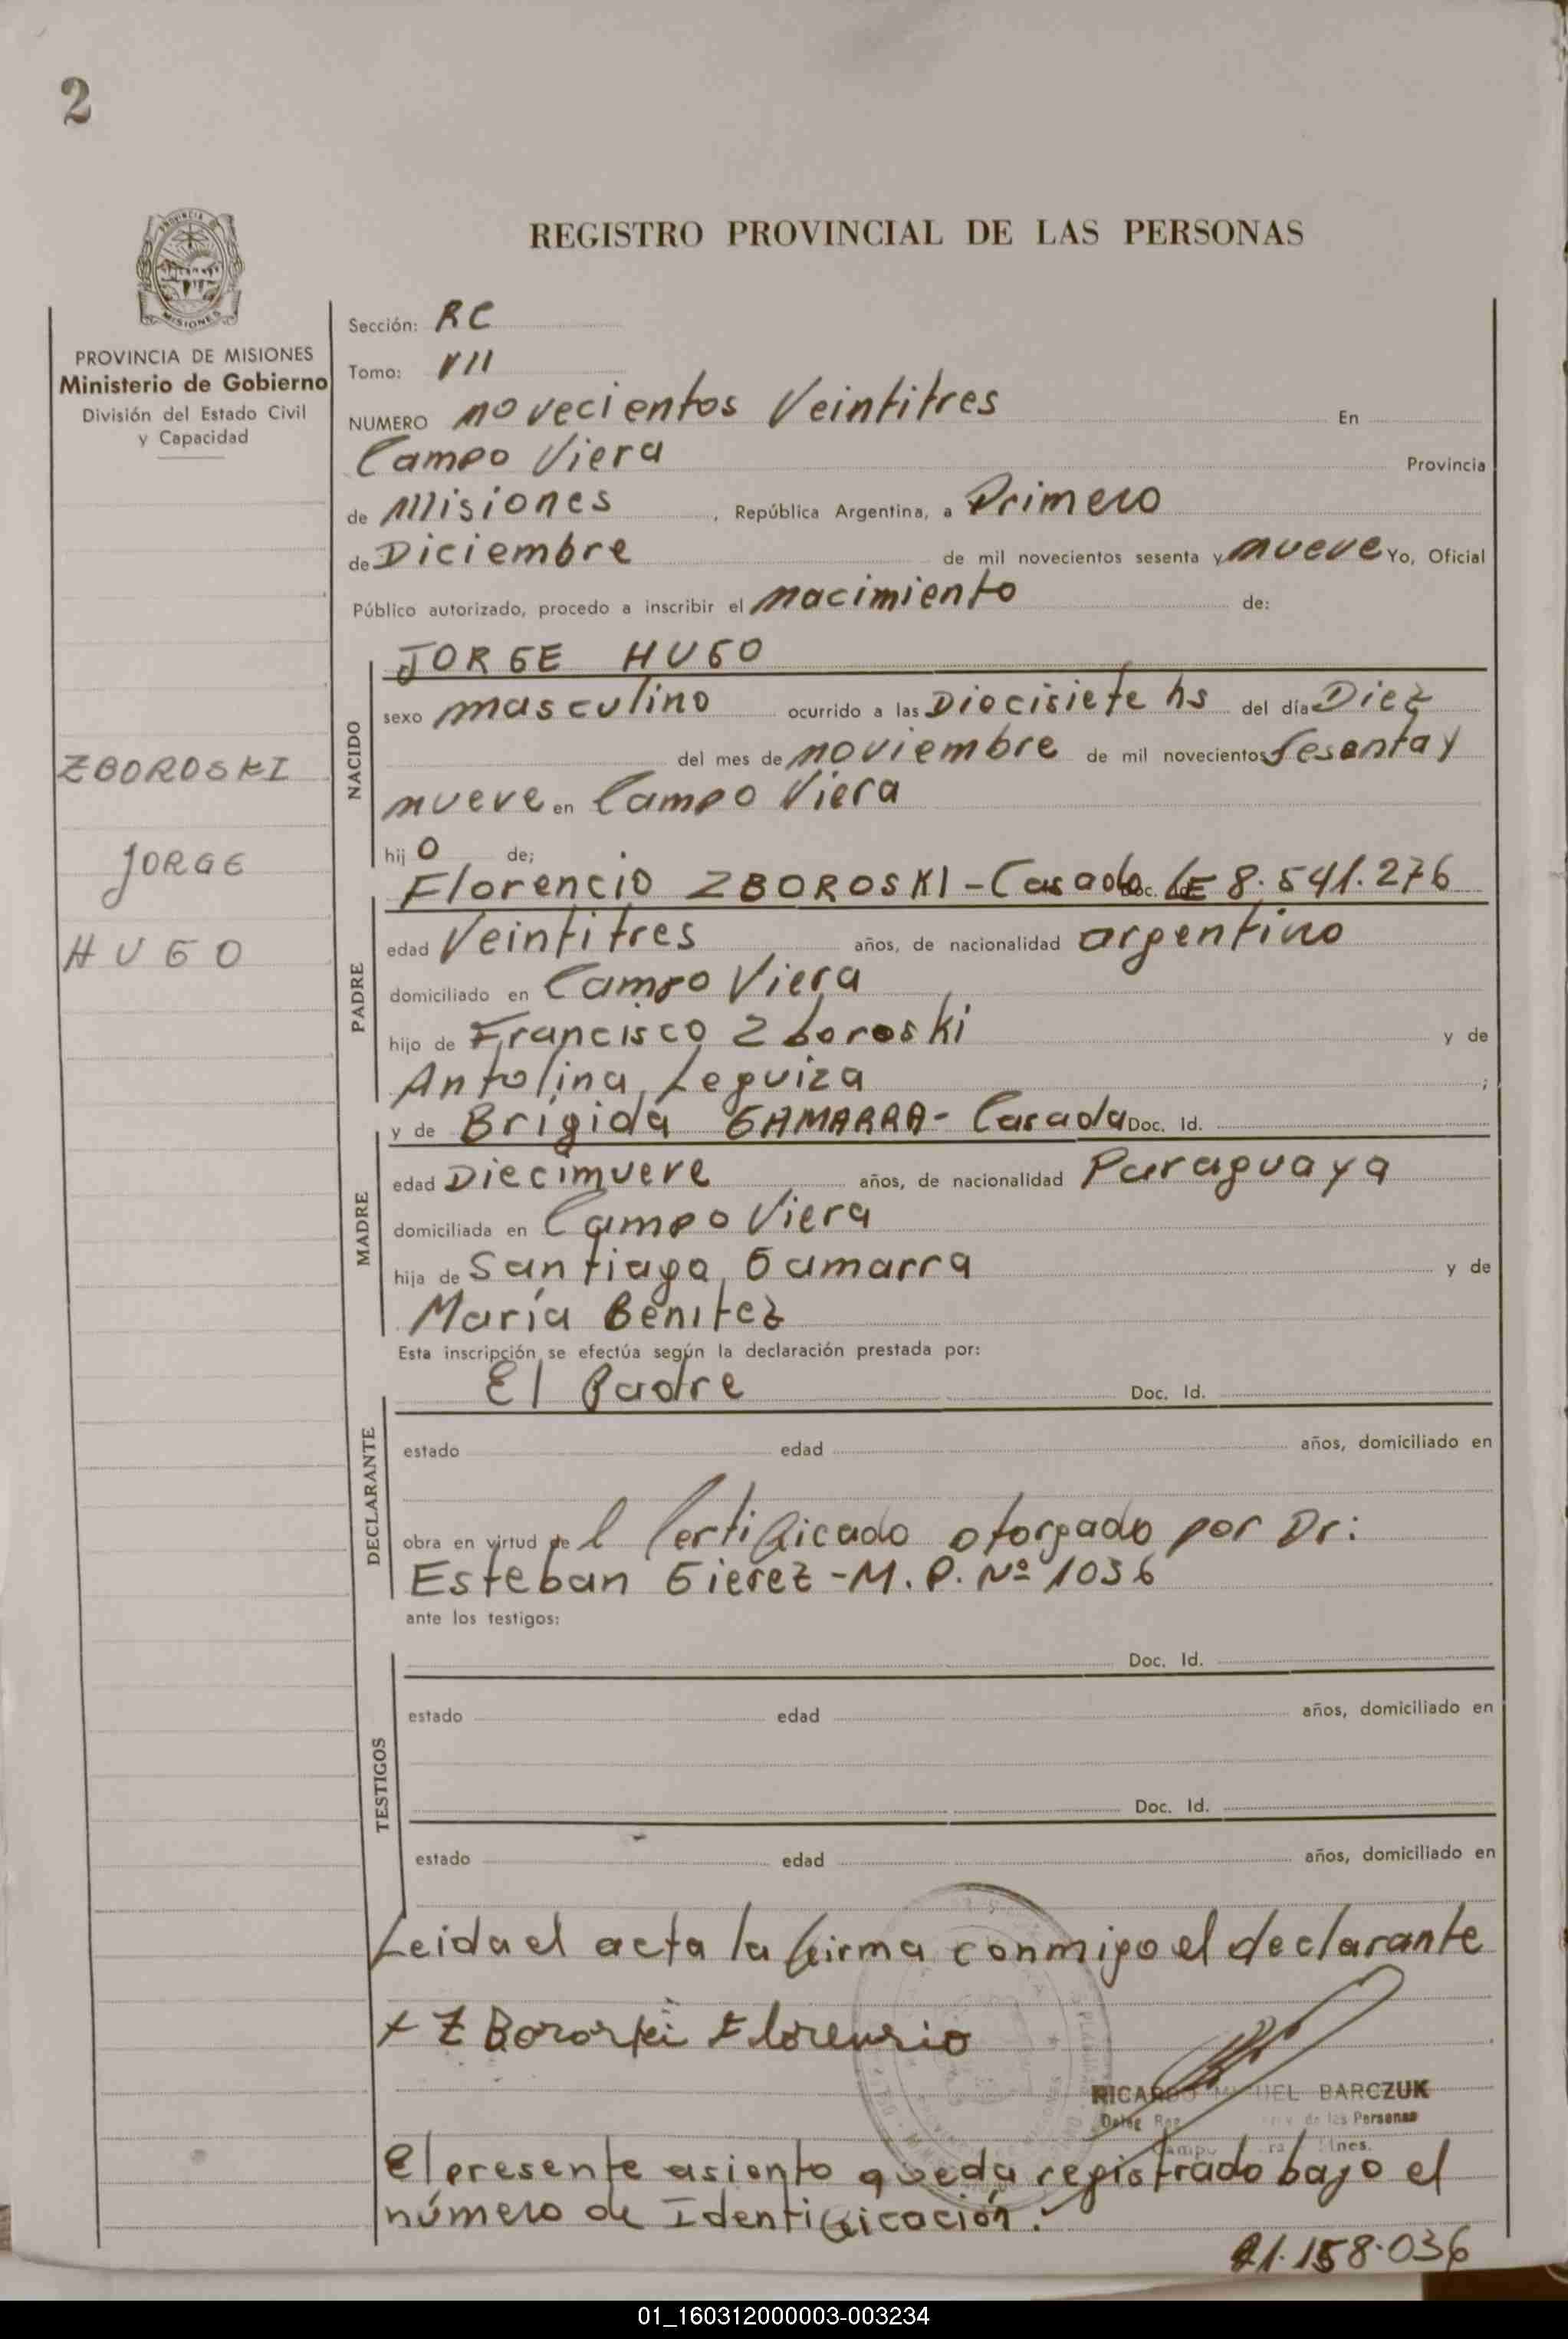 2
REGISTRO PROVINCIAL DE LAS PERSONAS
PROVINCIA DE MISIONES
Ministerio de Gobierno
División del Estado Civil
y Capacidad
ZBOROSKI
JORGE
HUGO
Sección: RC
Tomo: VII
NUMERO novecientos Veintitres En
Campo Viera Provincia
de Misiones, República Argentina, a Primero
de Diciembre de mil novecientos sesenta y nueve Yo, Oficial
Público autorizado, procedo a inscribir el nacimiento de:
NACIDO
JORGE HUGO
sexo masculino ocurrido a las Diecisiete hs del día Diez
del mes de noviembre de mil novecientos sesenta y
nueve en Campo Viera
hijo de;
PADRE
Florencio ZBOROSKI - Casado Doc. LE 8.541.276
edad Veintitres años, de nacionalidad argentino
domiciliado en Campo Viera
hijo de Francisco Zboroski y de
Antolina Leguiza;
MADRE
y de Brígida GAMARRA - Casada Doc. Id.
edad Diecinueve años, de nacionalidad Paraguaya
domiciliada en Campo Viera
hija de Santiago Gamarra y de
María Benitez
Esta inscripción se efectúa según la declaración prestada por:
DECLARANTE
El Padre Doc. Id.
estado edad años, domiciliado en
obra en virtud del Certificado otorgado por Dr:
Esteban Gierez - M.P. Nº 1036
ante los testigos:
TESTIGOS
Doc. Id.
estado edad años, domiciliado en
Doc. Id.
estado edad años, domiciliado en
Leida el acta la firma conmigo el declarante
+ ZBoroski Florensio
RICARDO MIGUEL BARCZUK
Deleg de las Personas
El presente asiento queda registrado bajo el
número de Identificación:
21.158.036
01_160312000003-003234